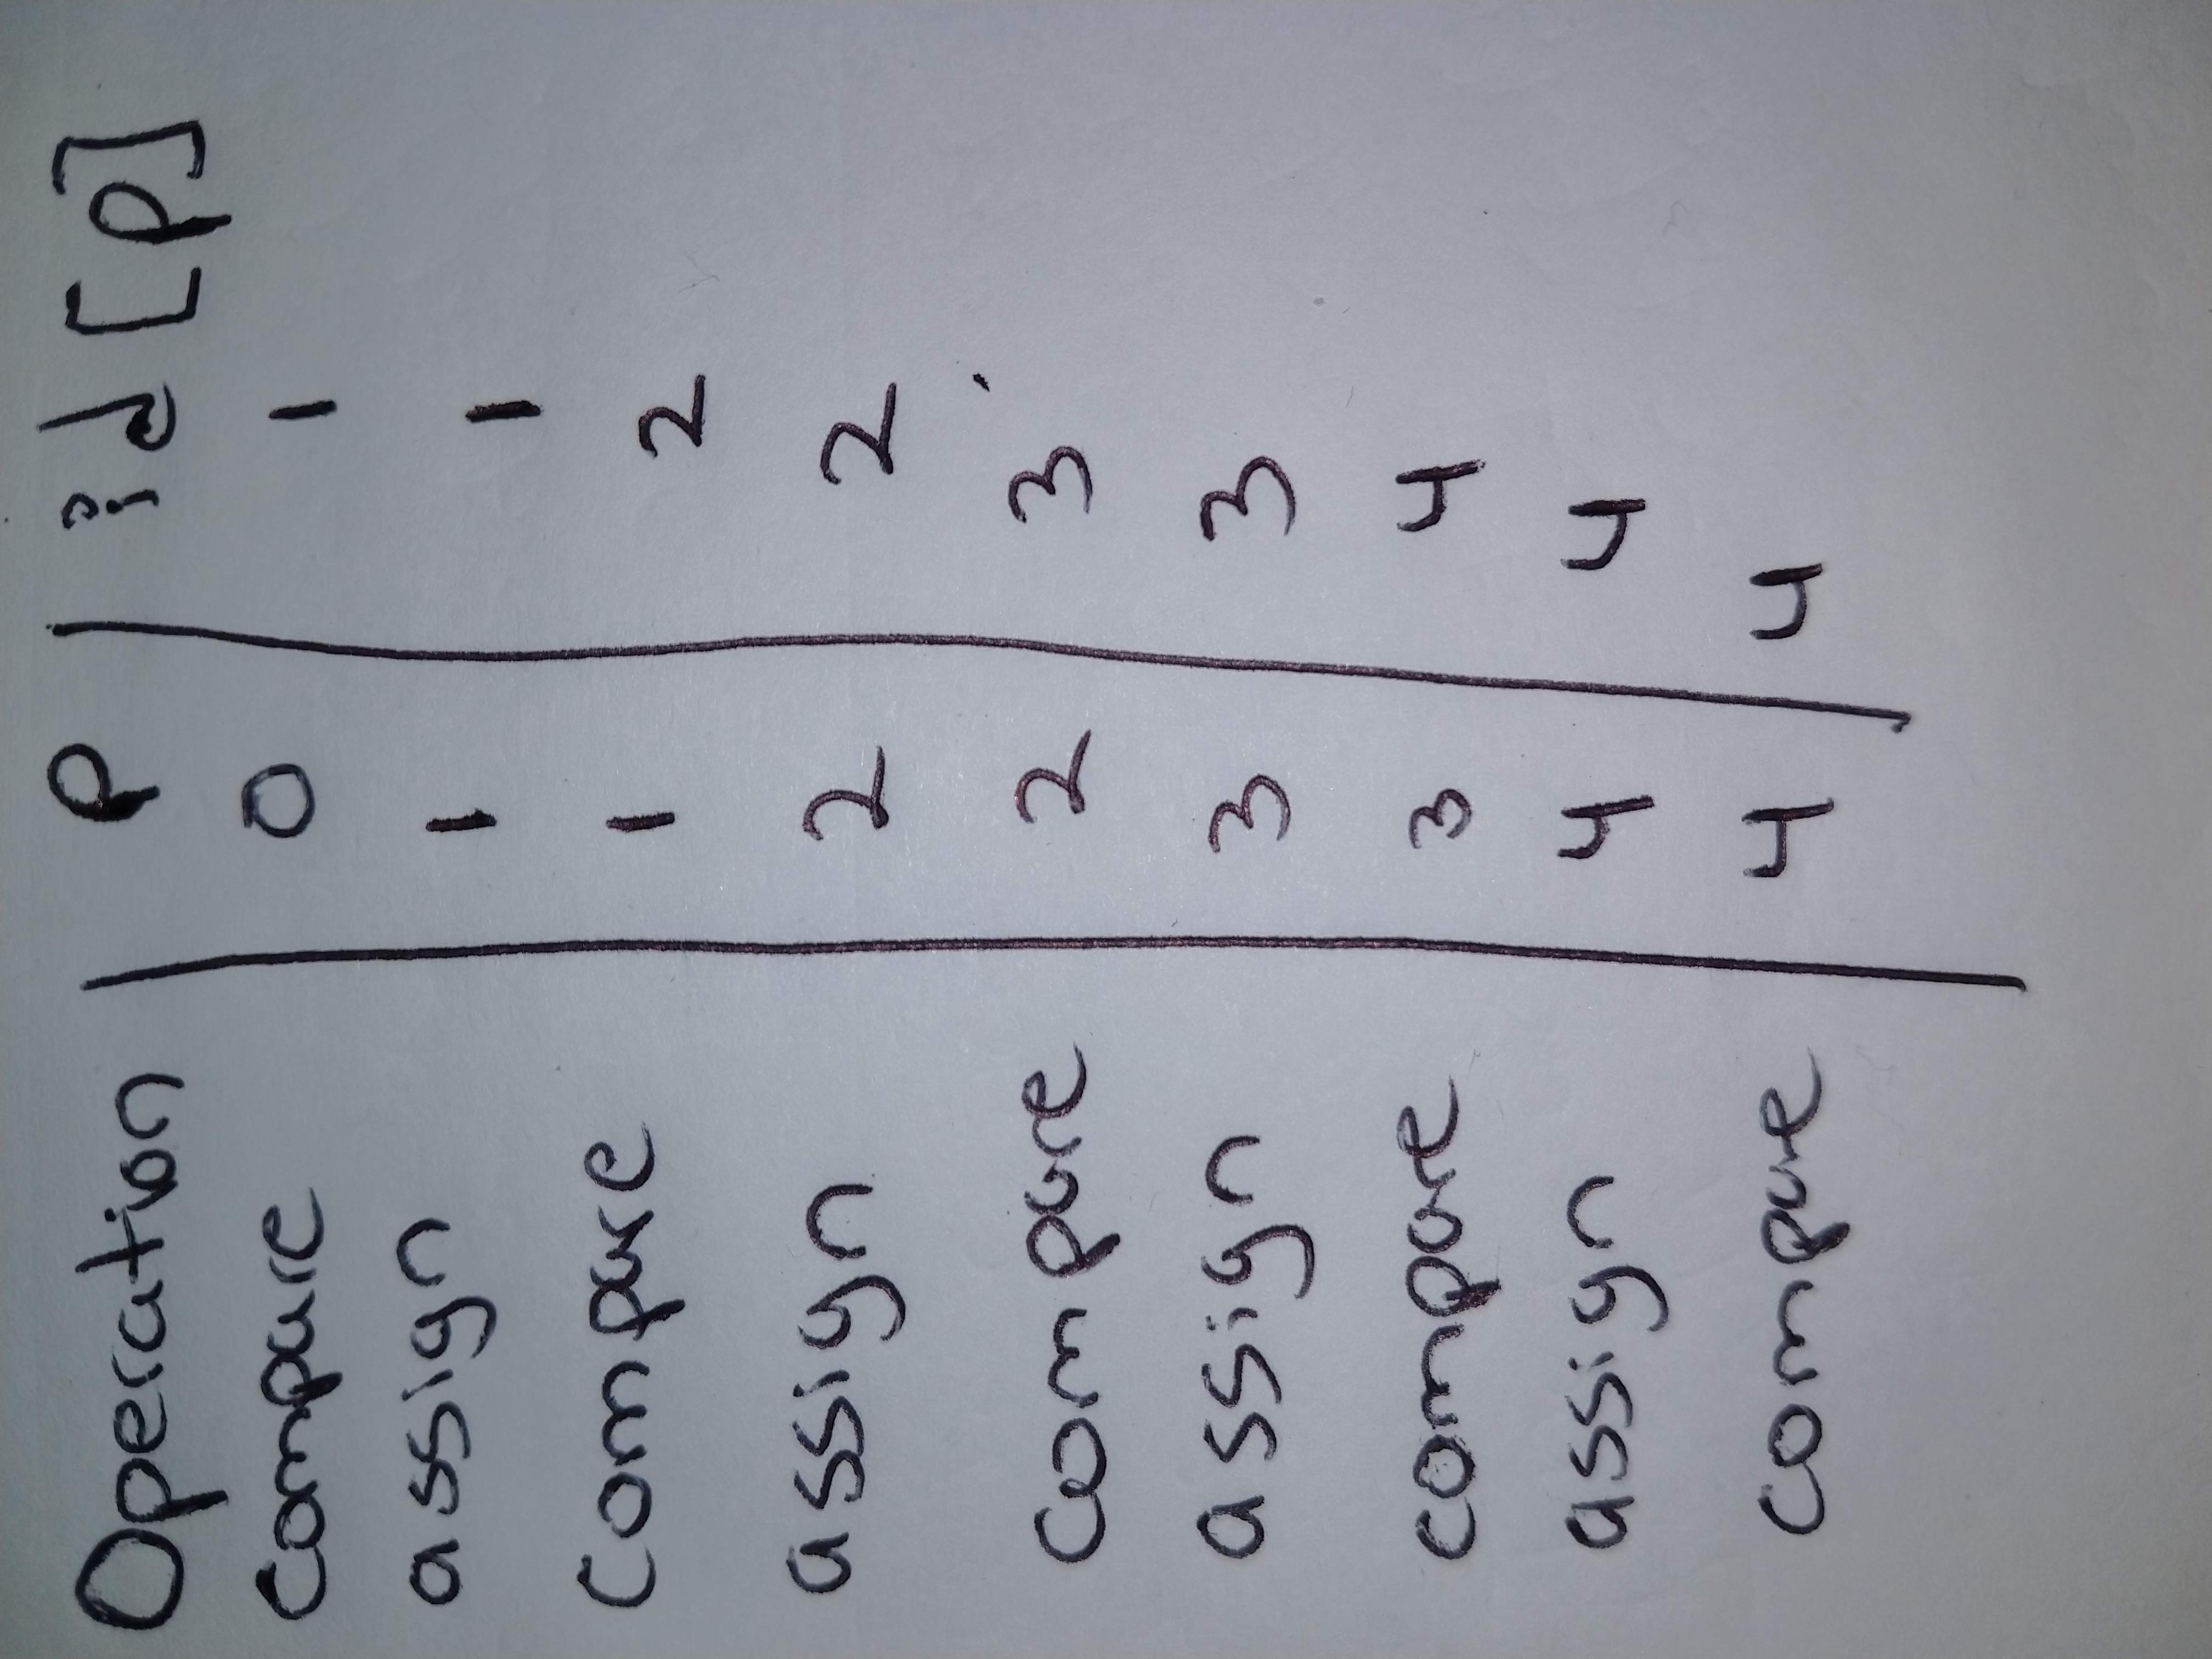 Operation P id [p]
compare 0 1
assign 1 1
compare 1 2
assign 2 2
compare 2 3
assign 3 3
compare 3 4
assign 4 4
compare 4 4